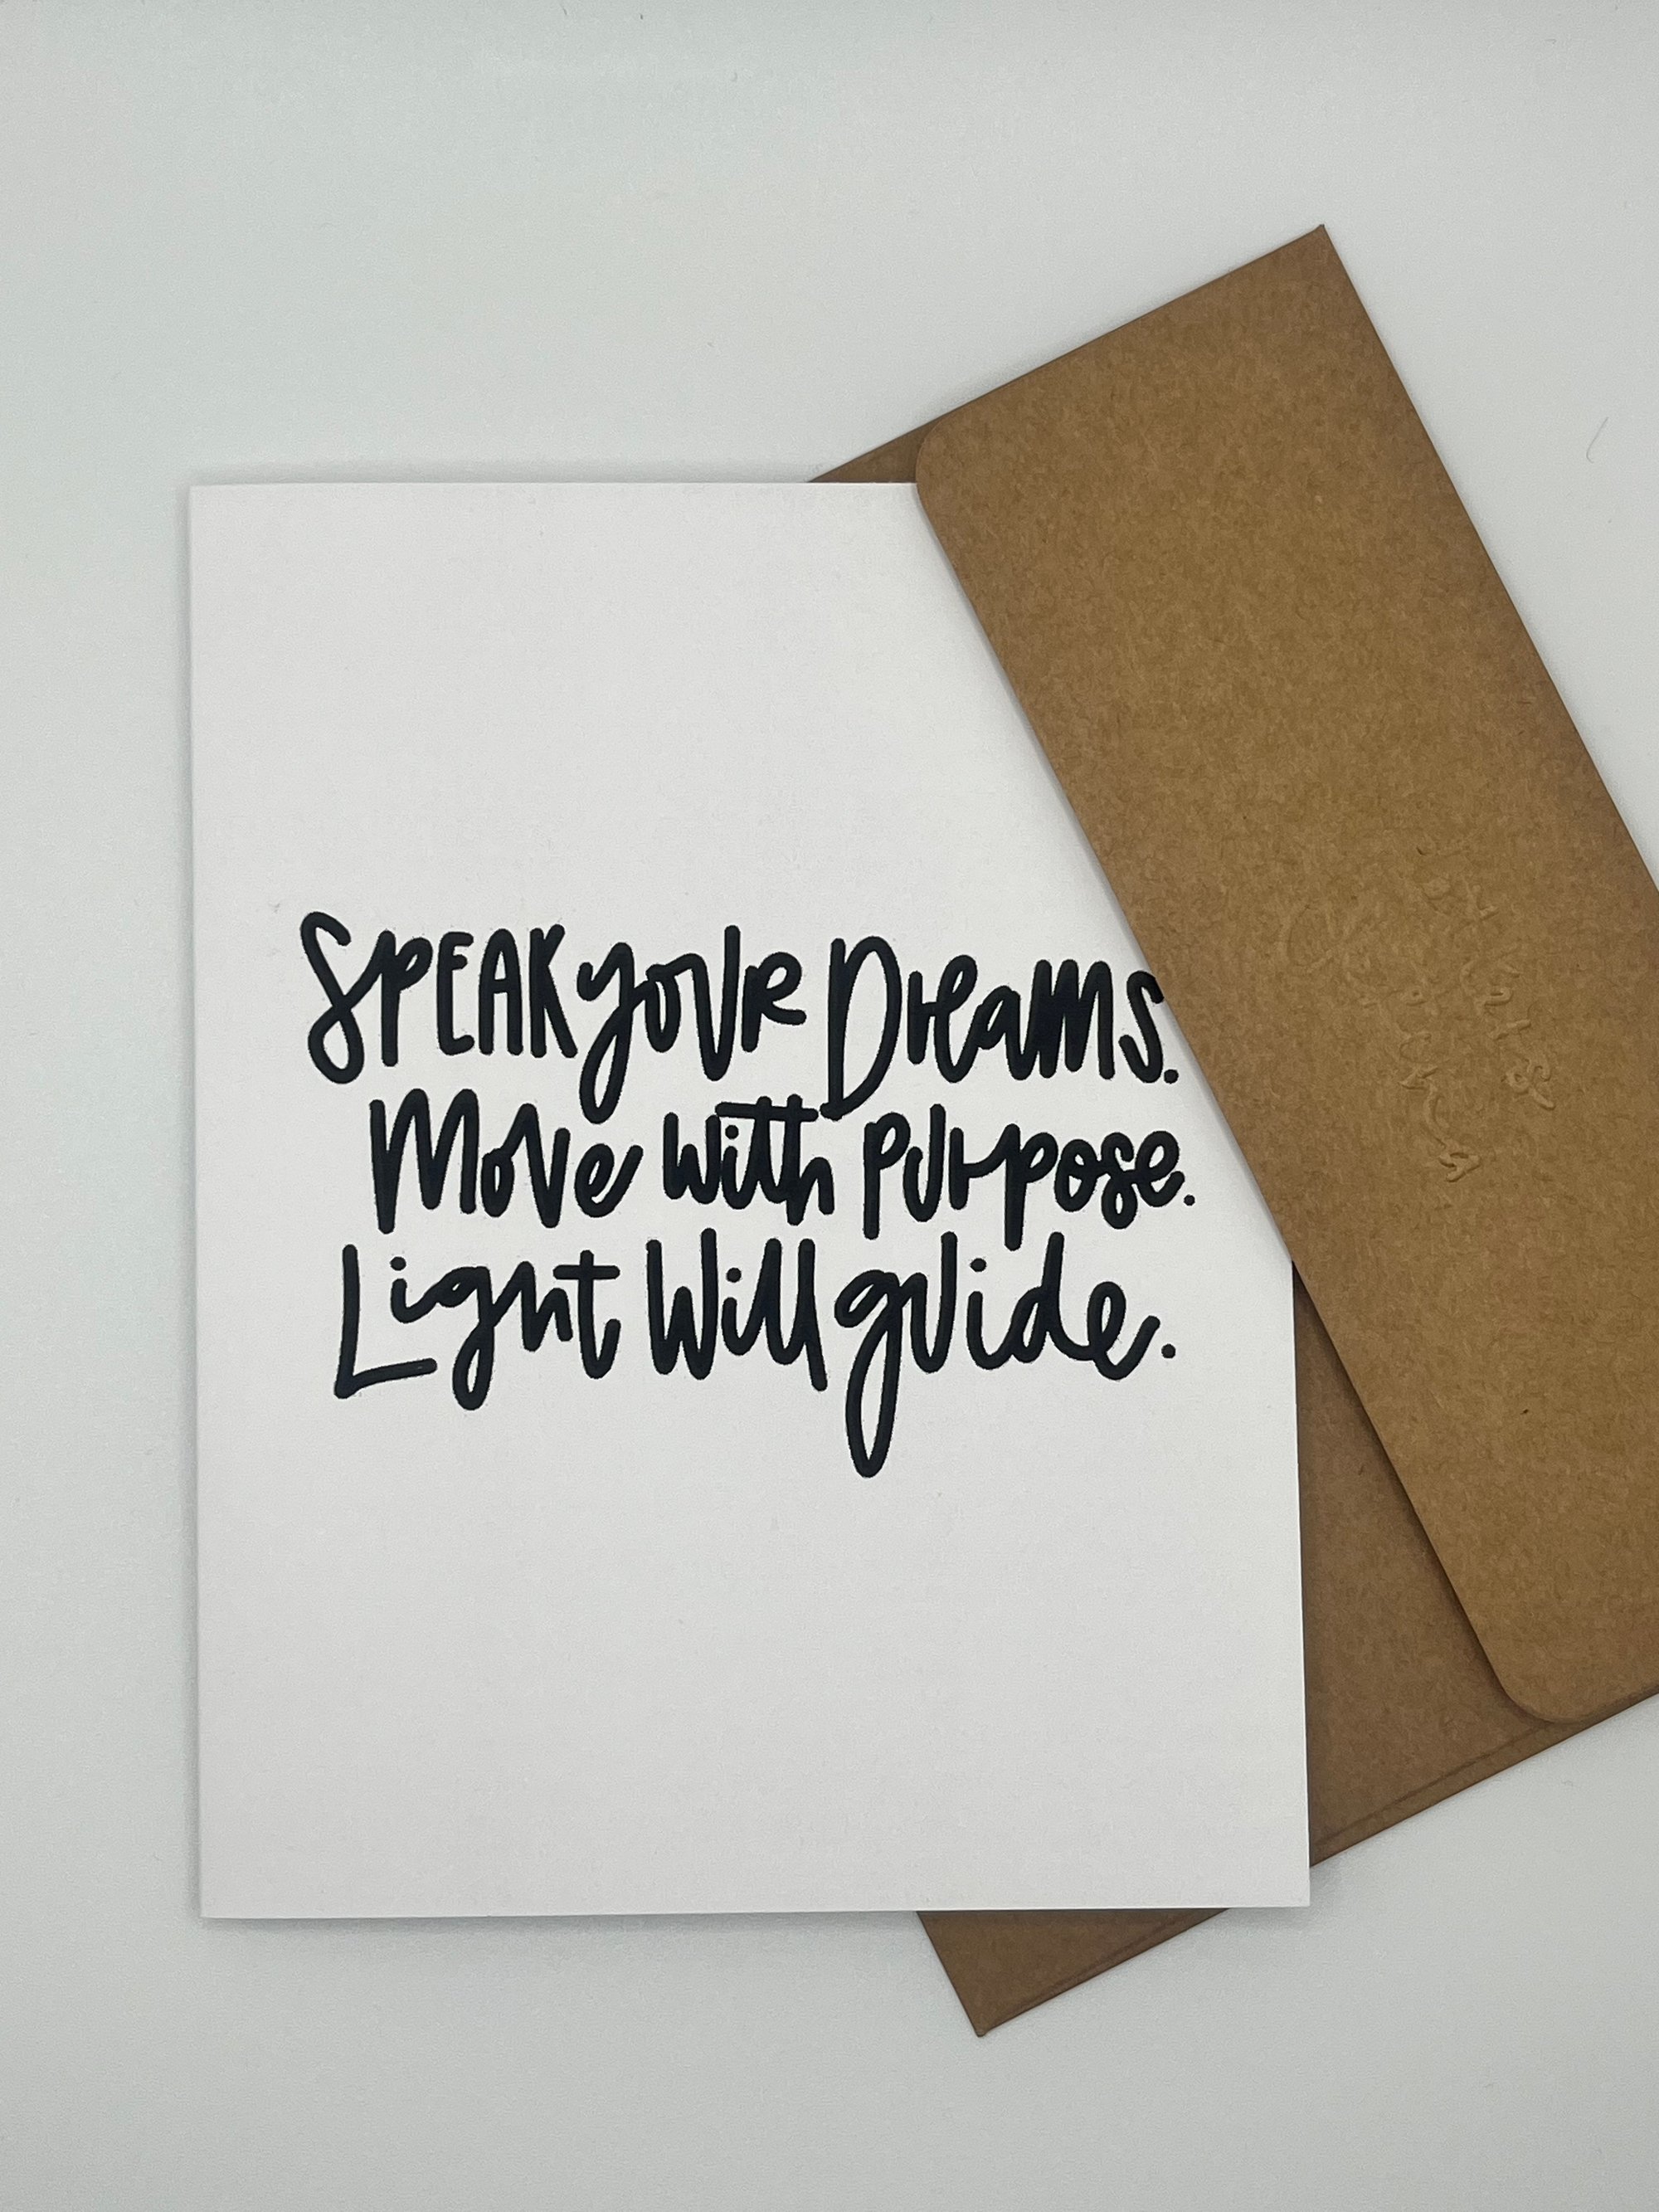 SPEAK your Dreams.
Move with Purpose.
Light Will guide.